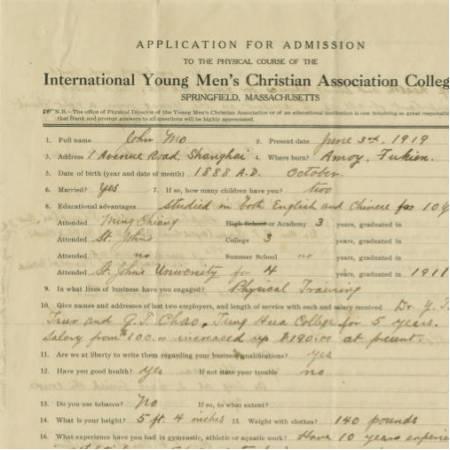 APPLICATION FOR ADMISSION
TO THE PHYSICAL COURSE OF THE
International Young Men's Christian Association Colleg
SPRINGFIELD, MASSACHUSETTS
N.B.—The office of Physical Director of the Young Men's Christian Association or of an educational institution is one involving so great responsi
that frank and prompt answers to all questions will be highly appreciated.
1. Full name John Mo 2. Present date June 3rd, 1919
3. Address 1 Avenue Road, Shanghai 4. Where born? Amoy, Fukien.
5. Date of birth (year and date of month) 1888 A.D. October.
6. Married? Yes 7. If so, how many children have you? two
8. Educational advantages studied in both English and Chinese for 10 y
Attended Ming Chiang High School or Academy 3 years, graduated in
Attended St. John's College 3 years, graduated in
Attended no Summer School no years, graduated in
Attended St. John's University for 4 years, graduated in 1911
9. In what lines of business have you engaged? Physical Training
10. Give names and addresses of last two employers, and length of service with each and salary received Dr. Y. T.
Tsur and Chao, Tsing Hua College for 5 years.
Salary from $100.00 increased up $190.00 at present.
11. Are we at liberty to write them regarding your business qualifications? yes
12. Have you good health? yes If not state your trouble no
13. Do you use tobacco? No If so, to what extent?
14. What is your height? 5 ft. 4 inches 15. Weight with clothes? 140 pounds
16. What experience have you had in gymnastic, athletic or aquatic work? Have 10 years experien